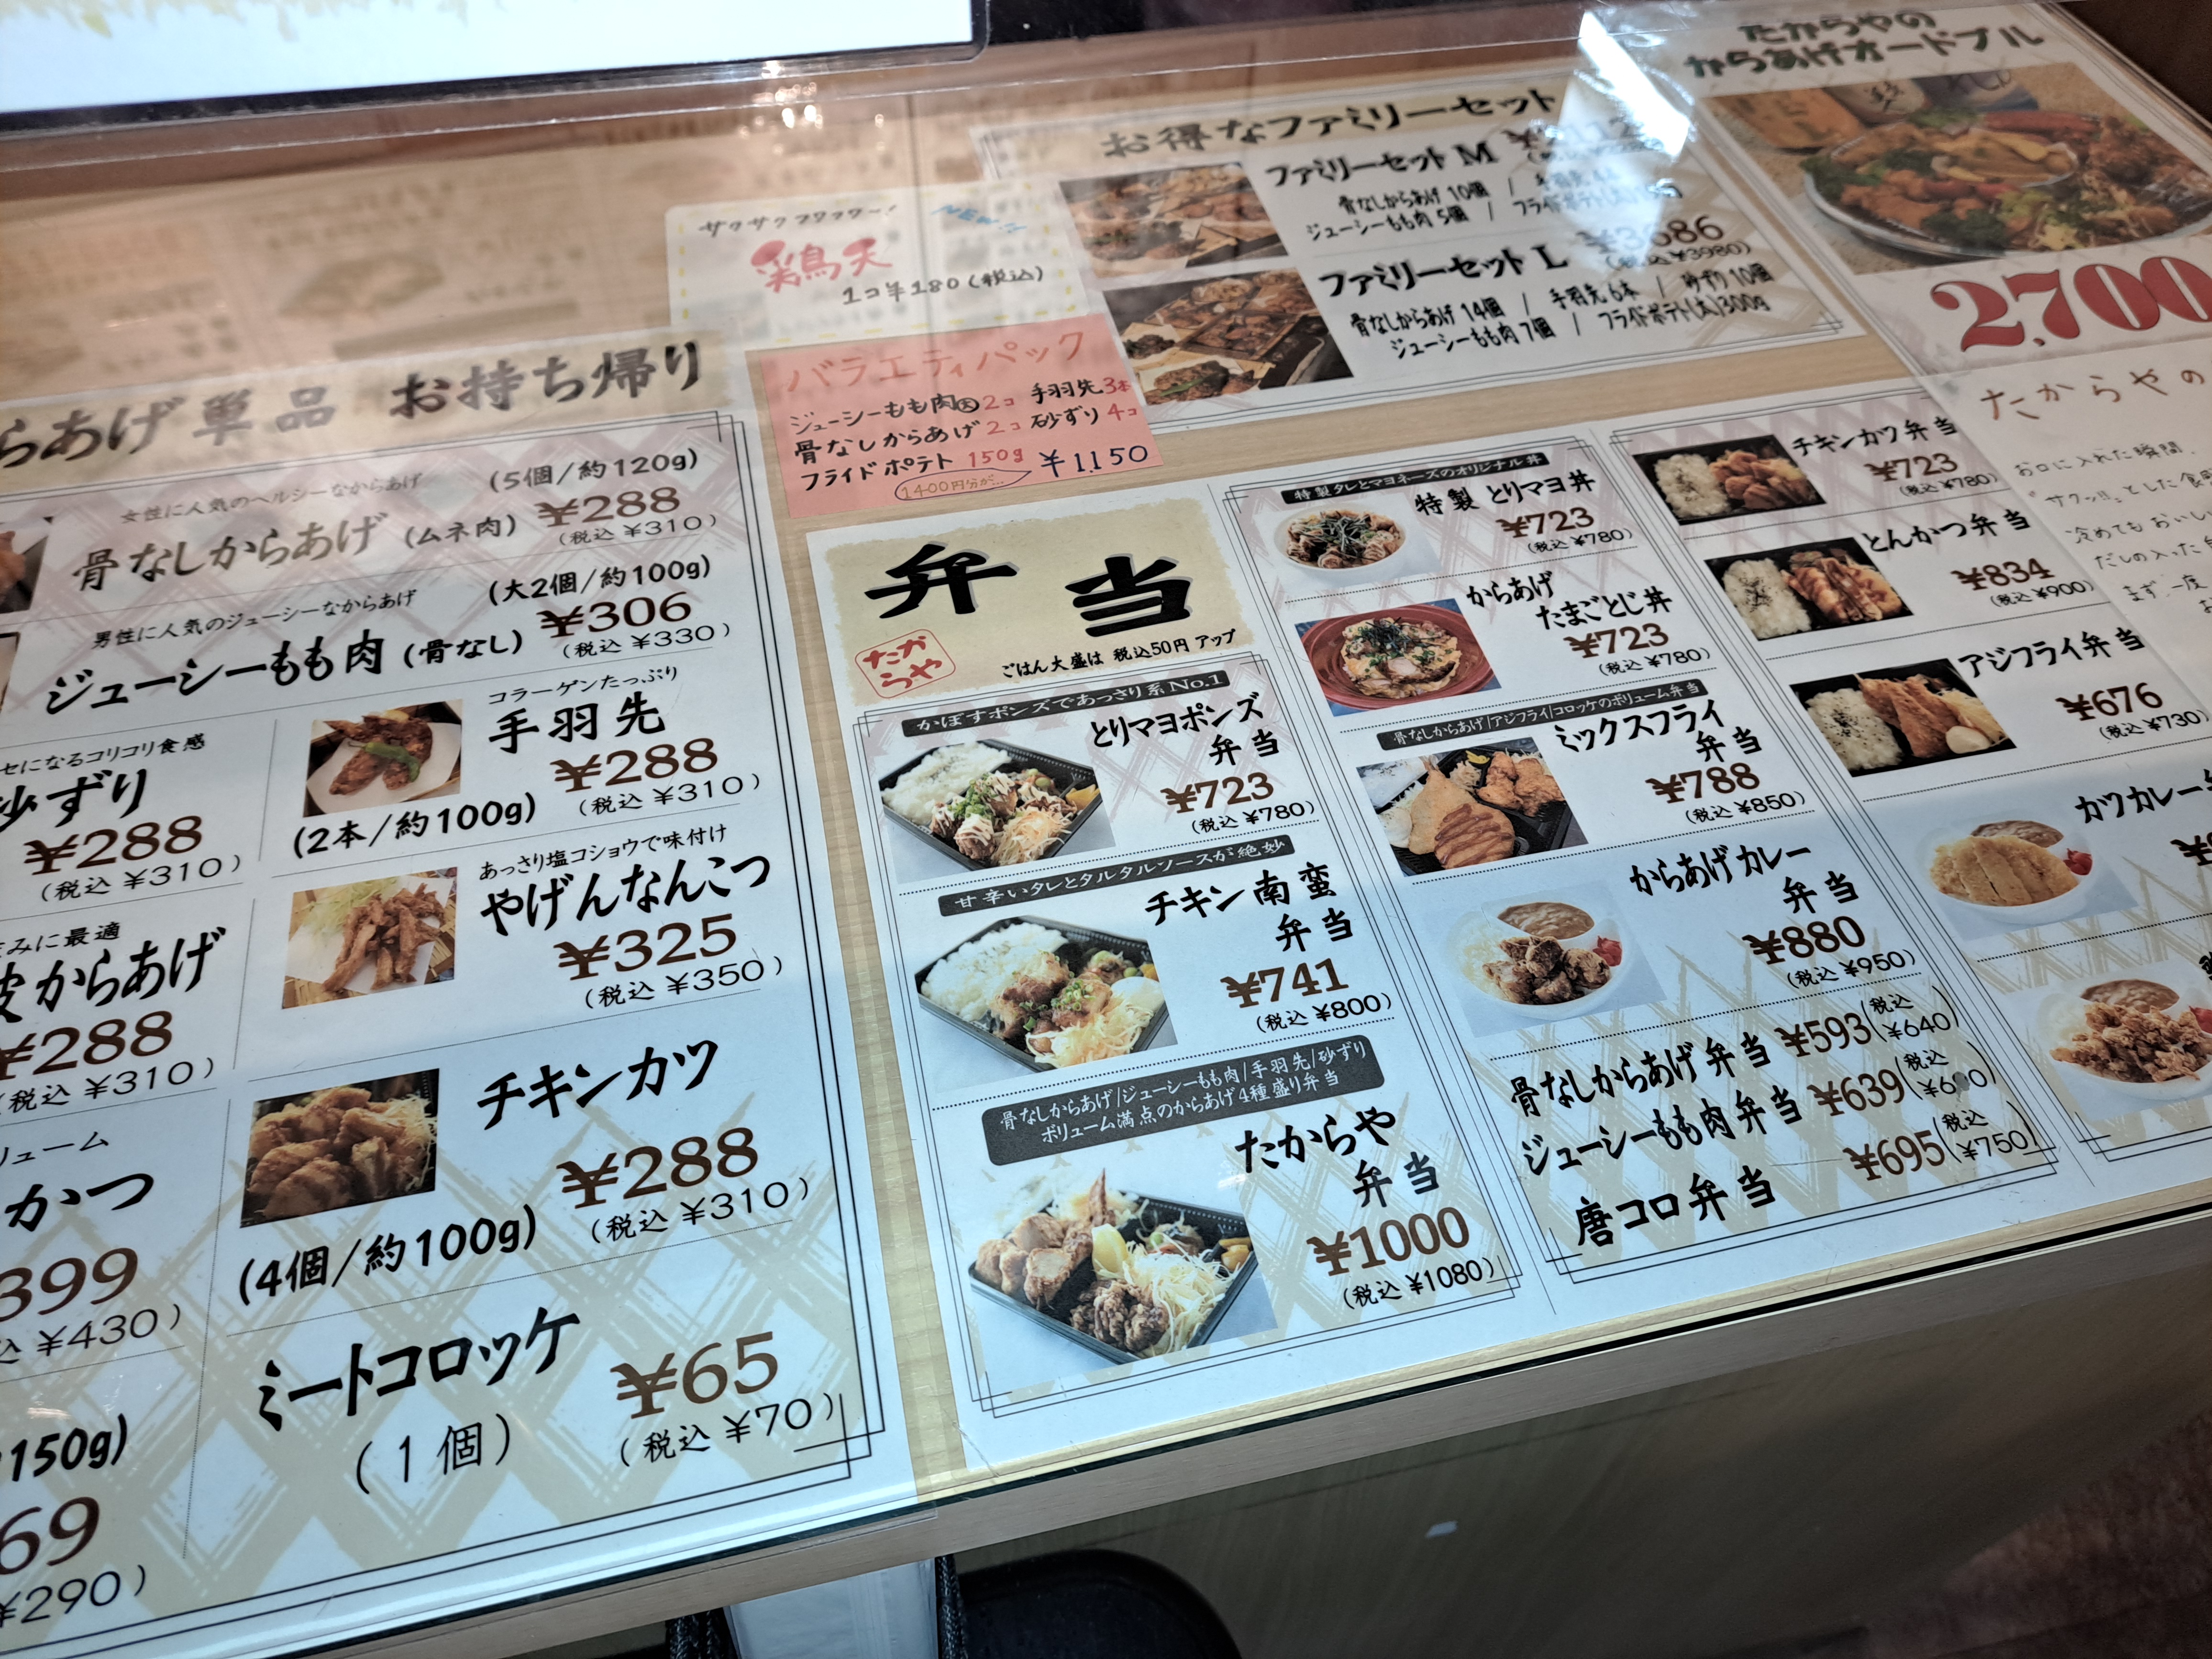 らあげ 単品 お持ち帰り
女性に人気のヘルシーなからあげ
(5個/約120g)
骨なしからあげ (ムネ肉)
¥288
(税込 ¥310)
男性に人気のジューシーなからあげ
(大2個/約100g)
ジューシーもも肉 (骨なし)
¥306
(税込 ¥330)
セになるコリコリ食感
砂ずり
¥288
(税込 ¥310)
コラーゲンたっぷり
手羽先
¥288
(2本/約100g)
(税込 ¥310)
みに最適
皮からあげ
¥288
(税込 ¥310)
あっさり塩コショウで味付け
やげんなんこつ
¥325
(税込 ¥350)
リューム
かつ
399
¥430)
チキンカツ
¥288
(4個/約100g)
(税込 ¥310)
150g)
69
¥290)
ミートコロッケ
(1個)
¥65
(税込 ¥70)
サクサク フワフワー!
NEW!!
鶏天
1コ ¥180 (税込)
バラエティパック
ジューシーもも肉大2コ 手羽先3本
骨なしからあげ2コ 砂ずり4コ
フライドポテト 150g ¥1150
1400円分が…
お得なファミリーセット
ファミリーセット M
骨なしからあげ 10個 /
ジューシーもも肉 5個 / フライドポテト(大)
ファミリーセット L
(税込 ¥3980)
骨なしからあげ 14個 / 手羽先 6本 / 砂ずり 10個
ジューシーもも肉 7個 / フライドポテト(大)300g
たからやの
からあげオードブル
2,700
たからやの
お口に入れた瞬間、
"サクッ!!"とした食
冷めてもおいし
だしの入った
まず、一度
弁当
たからや
ごはん大盛は 税込50円 アップ
かぼすポンズであっさり系No.1
とりマヨポンズ
弁当
¥723
(税込 ¥780)
甘辛いタレとタルタルソースが絶妙
チキン南蛮
弁当
¥741
(税込 ¥800)
骨なしからあげ/ジューシーもも肉/手羽先/砂ずり
ボリューム満点のからあげ4種盛り弁当
たからや
弁当
¥1000
(税込 ¥1080)
特製タレとマヨネーズのオリジナル丼
特製 とりマヨ丼
¥723
(税込 ¥780)
からあげ
たまごとじ丼
¥723
(税込 ¥780)
骨なしからあげ/アジフライ/コロッケのボリューム弁当
ミックスフライ
弁当
¥788
(税込 ¥850)
からあげカレー
弁当
¥880
(税込 ¥950)
骨なしからあげ弁当 ¥593 (税込 ¥640)
ジューシーもも肉弁当 ¥639 (税込
唐コロ弁当 ¥695 (税込 ¥750)
チキンカツ弁当
¥723
(税込 ¥780)
とんかつ弁当
¥834
(税込 ¥900)
アジフライ弁当
¥676
(税込 ¥730)
カツカレー